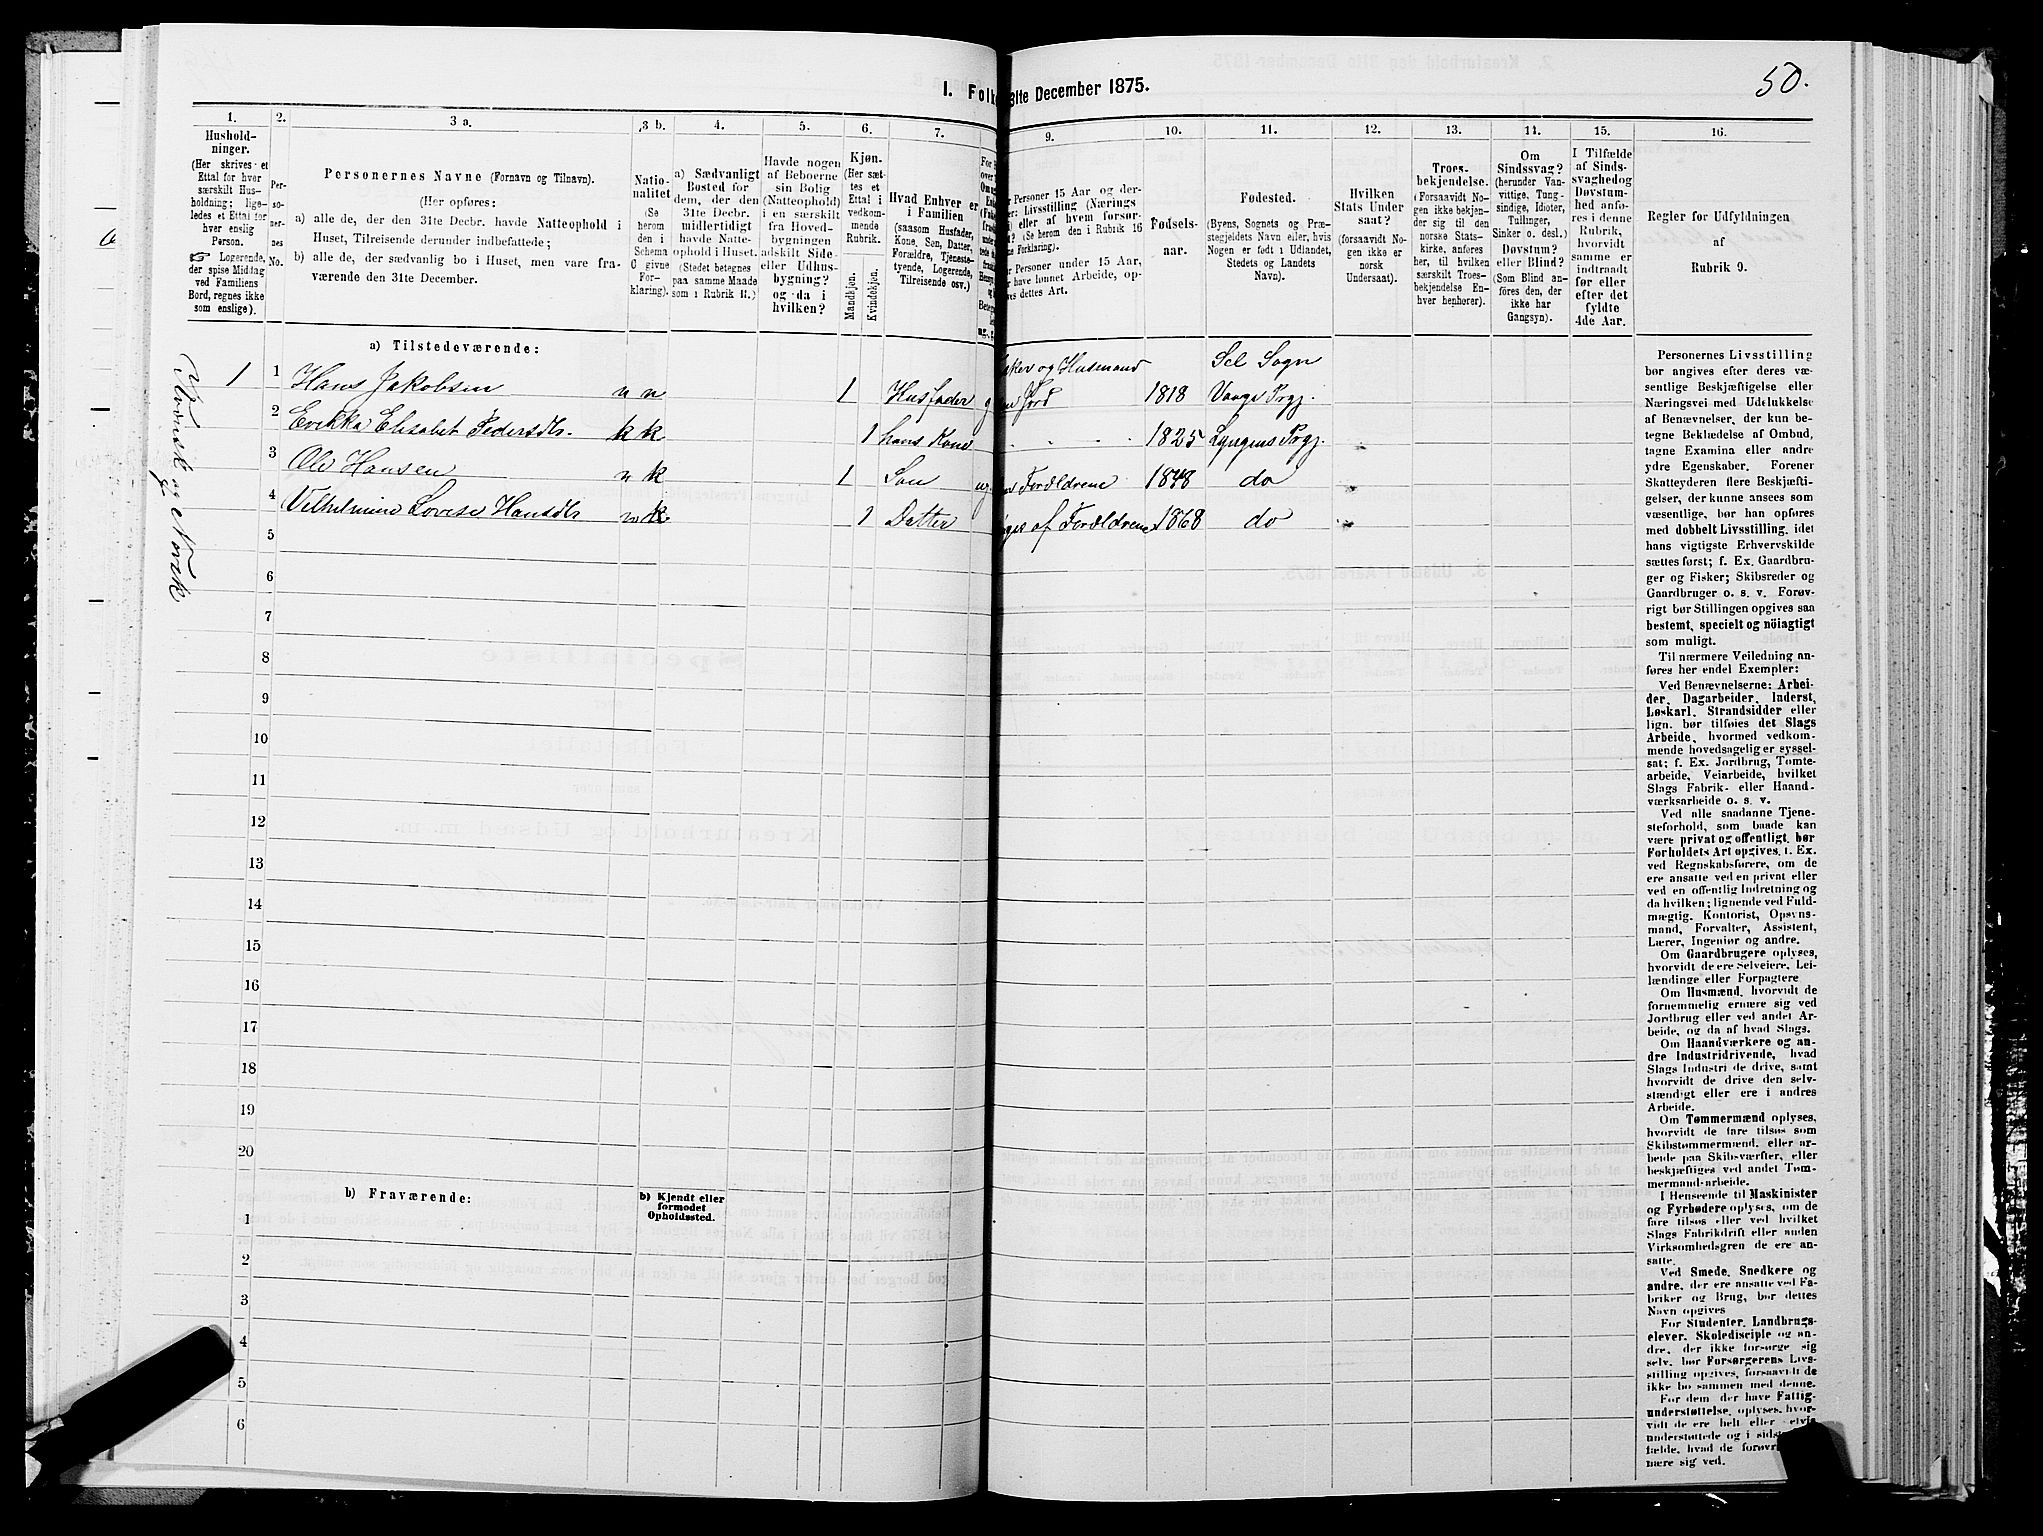 50.
1. Folke
31te December 1875.
1.
2.
3 a.
3 b.
4.
5.
6.
7.
9.
10.
11.
12.
13.
14.
15.
16.
Hushold-
ninger.
(Her skrives et
Ettal for hver
særskilt Hus-
holdning; lige-
ledes et Ettal for
hver enslig
Person.
Logerende,
der spise Middag
ved Familiens
Bord, regnes ikke
som enslige).
Per-
so-
ner-
nes
No.
Personernes Navne (Fornavn og Tilnavn).
(Her opføres:
a) alle de, der den 31te Decbr. havde Natteophold i
Huset, Tilreisende derunder indbefattede;
b) alle de, der sædvanlig bo i Huset, men vare fra-
værende den 31te December.
Natio-
nalitet
(Se
herom
den i
Schema
C givne
For-
klaring).
a) Sædvanligt
Bosted for
dem, der den
31te Decbr.
midlertidigt
havde Natte-
ophold i Huset.
(Stedet betegnes
paa samme Maade
som i Rubrik 11.)
Havde nogen
af Beboerne
sin Bolig
(Natteophold)
i en særskilt
fra Hoved-
bygningen
adskilt Side-
eller Udhus-
bygning?
og da i
hvilken?
Kjøn.
(Her sæt-
tes et
Ettal i
vedkom-
mende
Rubrik.
Mandkjøn.
Kvindekjøn.
Hvad Enhver er
i Familien
(saasom Husfader,
Kone, Søn, Datter,
Forældre, Tjeneste-
tyende, Logerende,
Tilreisende osv.)
Personer 15 Aar og der-
Livsstilling (Nærings
eller af hvem forsør-
(Se herom den i Rubrik 16
Forklaring).
Personer under 15 Aar,
have lønnet Arbeide, op-
dettes Art.
Fødsels-
aar.
Fødested.
(Byens, Sognets og Præ-
stegjeldets Navn eller, hvis
Nogen er født i Udlandet,
Stedets og Landets
Navn).
Hvilken
Stats Under
saat?
(forsaavidt No-
gen ikke er
norsk
Undersaat).
Troes-
bekjendelse.
(Forsaavidt No-
gen ikke bekjen-
der sig til den
norske Stats-
kirke, anføres
her, til hvilken
særskilt Troes-
bekjendelse En-
hver henhører).
Om
Sindssvag?
(herunder Van-
vittige, Tung-
sindige, Idioter,
Tullinger,
Sinker o. desl.)
Døvstum?
eller Blind?
(Som Blind an-
føres den, der
ikke har
Gangsyn).
I Tilfælde
af Sinds-
svaghed og
Døvstum-
hed anfø-
res i denne
Rubrik,
hvorvidt
samme er
indtraadt
før eller
efter det
fyldte
4de Aar.
Regler for Udfyldningen
af
Rubrik 9.
a) Tilstedeværende:
1 1 Hans Jakobsen n n 1 Husfader Fisker og Husmand med Jord 1818 Sel Sogn Vaage Prgj.
2 Erikka Elisabet Pedersdtr. k k 1 hans Kone 1825 Lyngens Prgj.
3 Ole Hansen n k 1 Søn ug. Forældrene 1848 do
4 Vilhelmine Lovise Hansdtr n k 1 Datter af Forældrene 1868 do
Kvænsk og Norsk
5
6
7
8
9
10
11
12
13
14
15
16
17
18
19
20
b) Fraværende:
b) Kjendt eller
formodet
Opholdssted.
1
2
3
4
5
6
Personernes Livsstilling
bør angives efter deres væ-
sentlige Beskjæftigelse eller
Næringsvei med Udelukkelse
af Benævnelser, der kun be-
tegne Beklædelse af Ombud,
tagne Examina eller andre
ydre Egenskaber. Forener
Skatteyderen flere Beskjæfti-
gelser, der kunne ansees som
væsentlige, bør han opføres
med dobbelt Livsstilling, idet
hans vigtigste Erhvervskilde
sættes først; f. Ex. Gaardbru-
ger og Fisker; Skibsreder og
Gaardbruger o. s. v. Forøv-
rigt bør Stillingen opgives saa
bestemt, specielt og nöiagtigt
som muligt.
Til nærmere Veiledning an-
føres her endel Exempler:
Ved Benævnelserne: Arbei-
der, Dagarbeider, Inderst,
Løskarl, Strandsidder eller
lign. bør tilføies det Slags
Arbeide, hvormed vedkom-
mende hovedsagelig er syssel-
sat; f. Ex. Jordbrug, Tomte-
arbeide, Veiarbeide, hvilket
Slags Fabrik- eller Haand-
værksarbeide o. s. v.
Ved alle saadanne Tjene-
steforhold, som baade kan
være privat og offentligt, bør
Forholdets Art opgives, f. Ex.
ved Regnskabsførere, om de
ere ansatte ved en privat eller
ved en offentlig Indretning og
da hvilken; lignende ved Fuld-
mægtig, Kontorist, Opsyns-
mand, Forvalter, Assistent,
Lærer, Ingeniør og andre.
Om Gaardbrugere oplyses,
hvorvidt de ere Selveiere, Lei-
lændinge eller Forpagtere
Om Husmænd, hvorvidt de
fornemmelig ernære sig ved
Jordbrug eller ved andet Ar-
beide, og da af hvad Slags.
Om Haandværkere og an-
dre Industridrivende, hvad
Slags Industri de drive, samt
hvorvidt de drive den selv-
stændigt eller ere i andres
Arbeide.
Om Tømmermænd oplyses,
hvorvidt de fare tilsøs som
Skibstømmermænd, eller ar-
beide paa Skibsværfter, eller
beskjæftiges ved andet Tøm-
mermand-arbeide.
I Henseende til Maskinister
og Fyrbødere oplyses, om de
fare tilsøs eller ved hvilket
Slags Fabrikdrift eller anden
Virksomhedsgren de ere an-
satte.
Ved Smede, Snedkere og
andre, der ere ansatte ved Fa-
briker og Brug, bør dettes
Navn opgives
For Studenter, Landbrugs-
elever, Skoledisciple og an-
dre, der ikke forsørge sig
selv, bør Forsørgerens Livs-
stilling opgives, forsaavidt de
ikke bo sammen med denne.
For dem, der have Fattig-
understøttelse, oplyses, hvor-
vidt de ere helt eller
understøttede og i sidst
fælde, hvad de forøvr
nære sig ved.